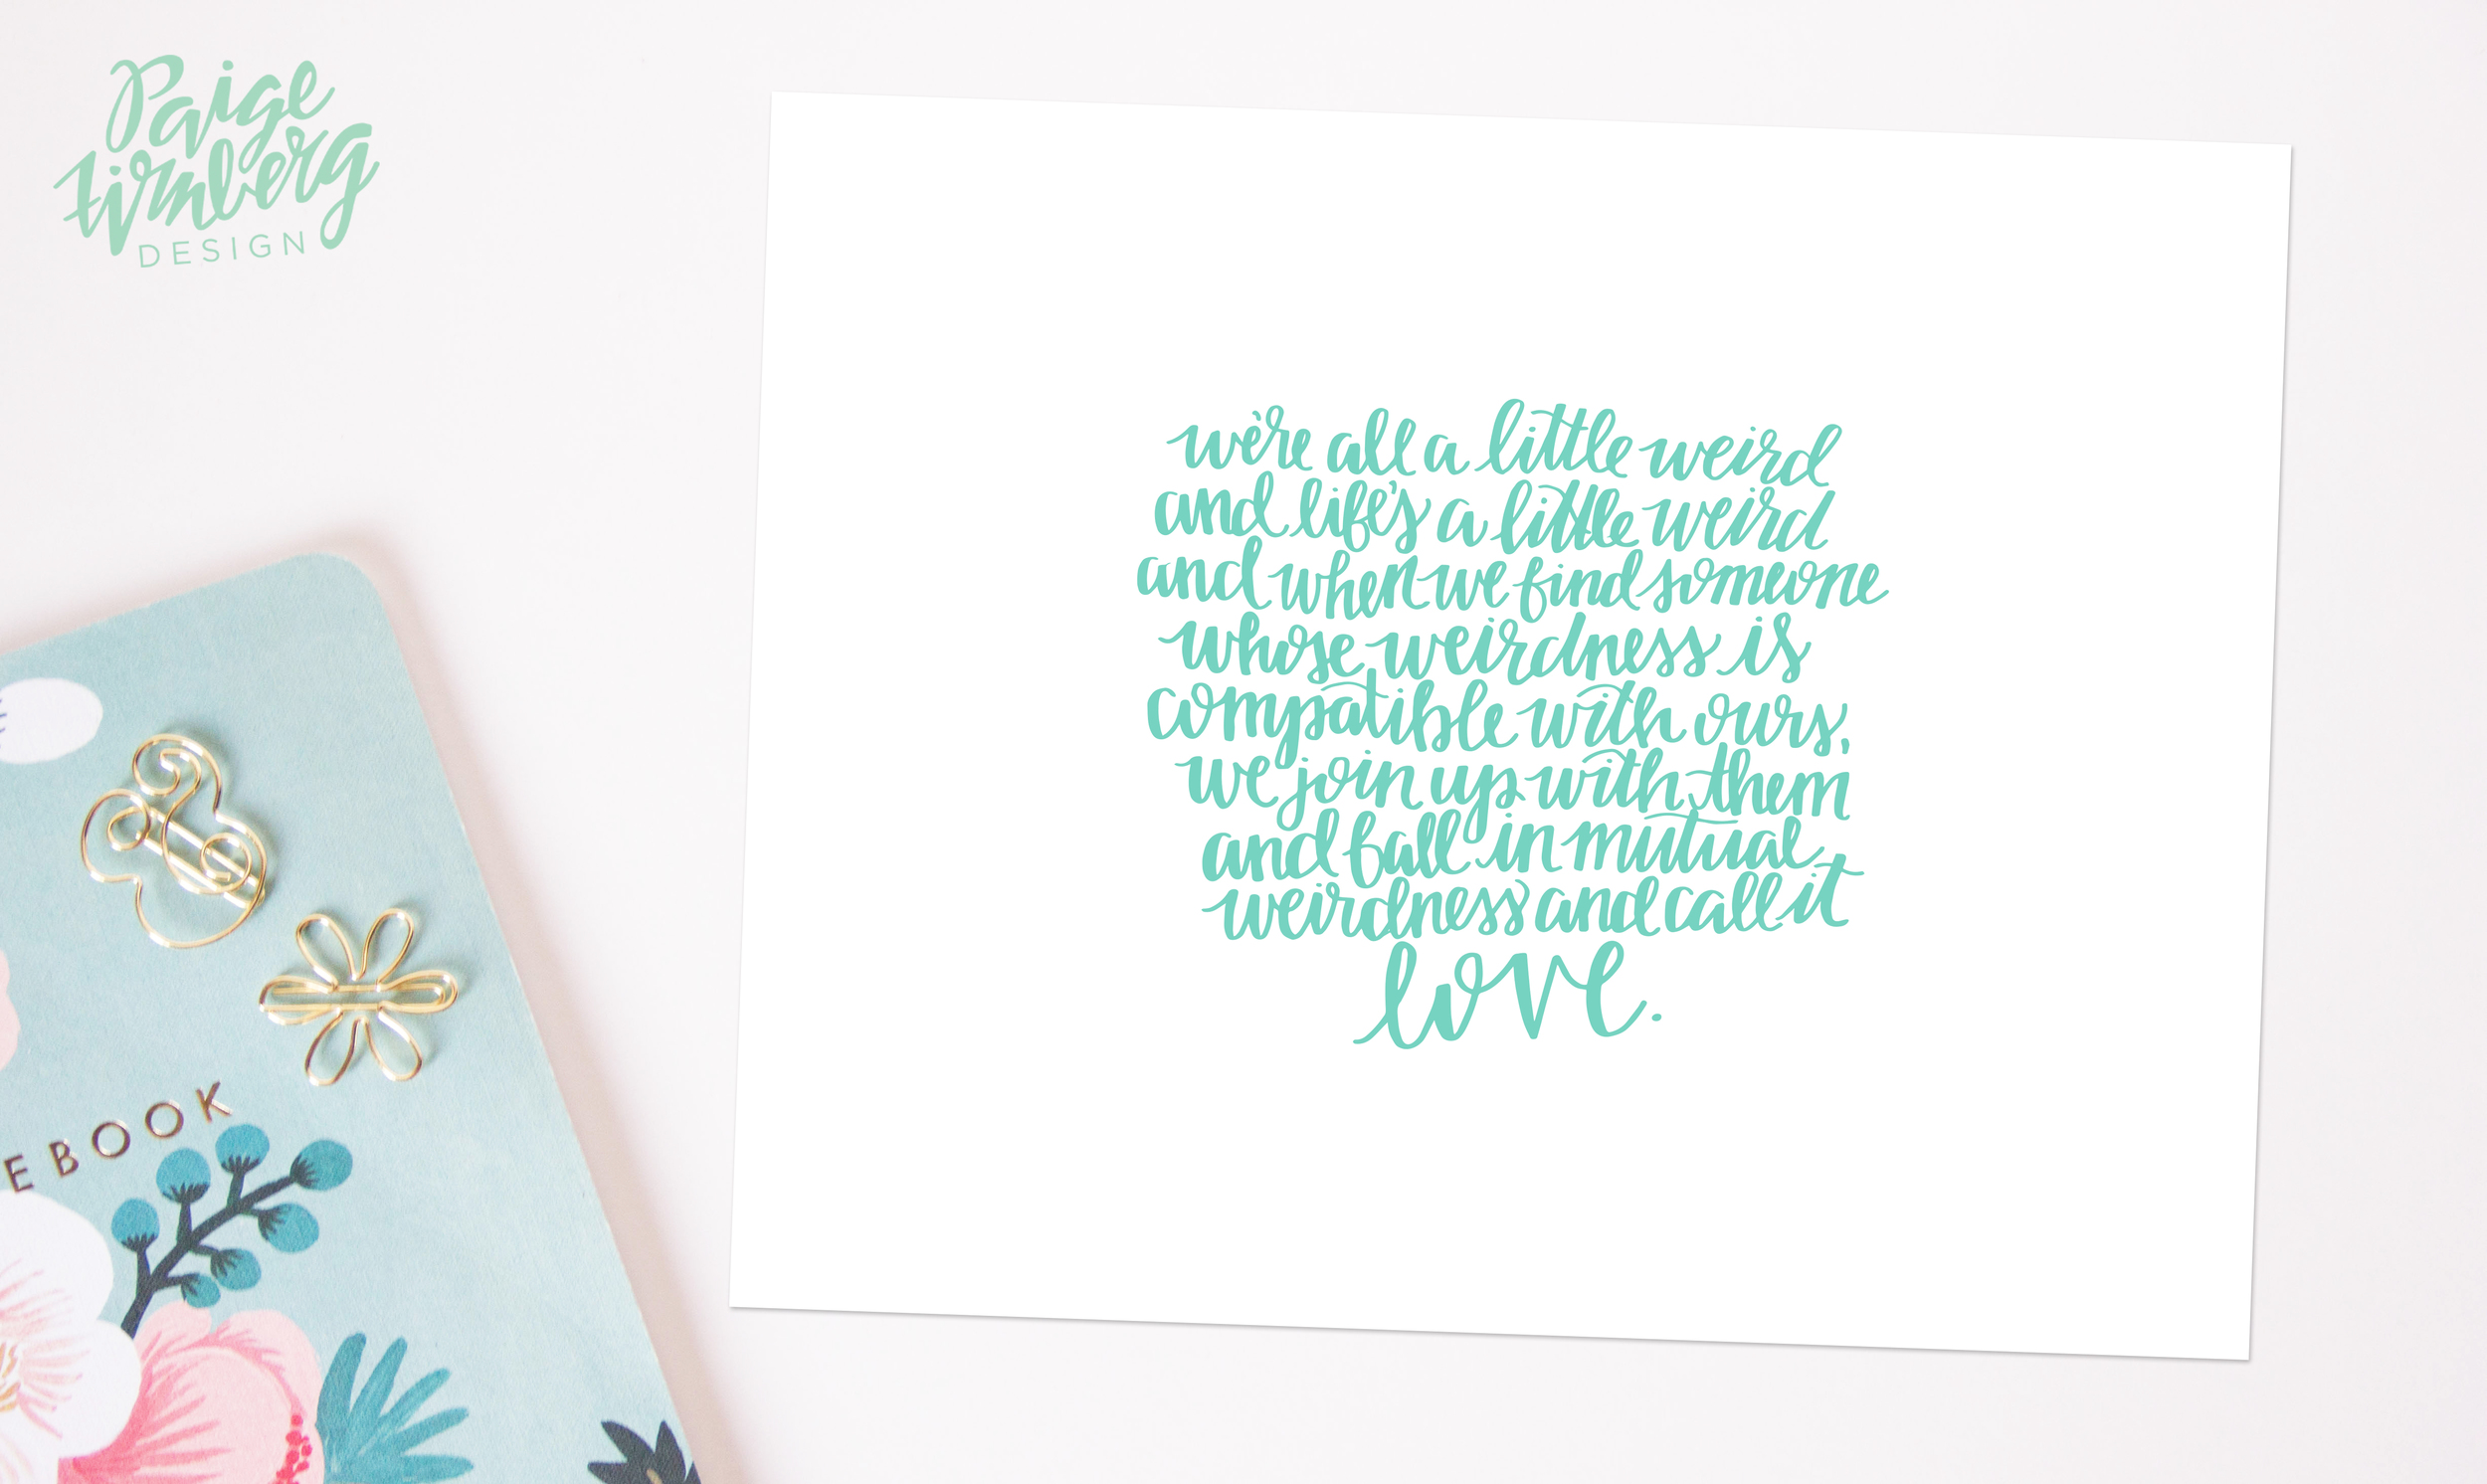 Paige
Firnberg
DESIGN
we're all a little weird
and life's a little weird
and when we find someone
whose weirdness is
compatible with ours,
we join up with them
and fall in mutual
weirdness and call it
love.
EBOOK